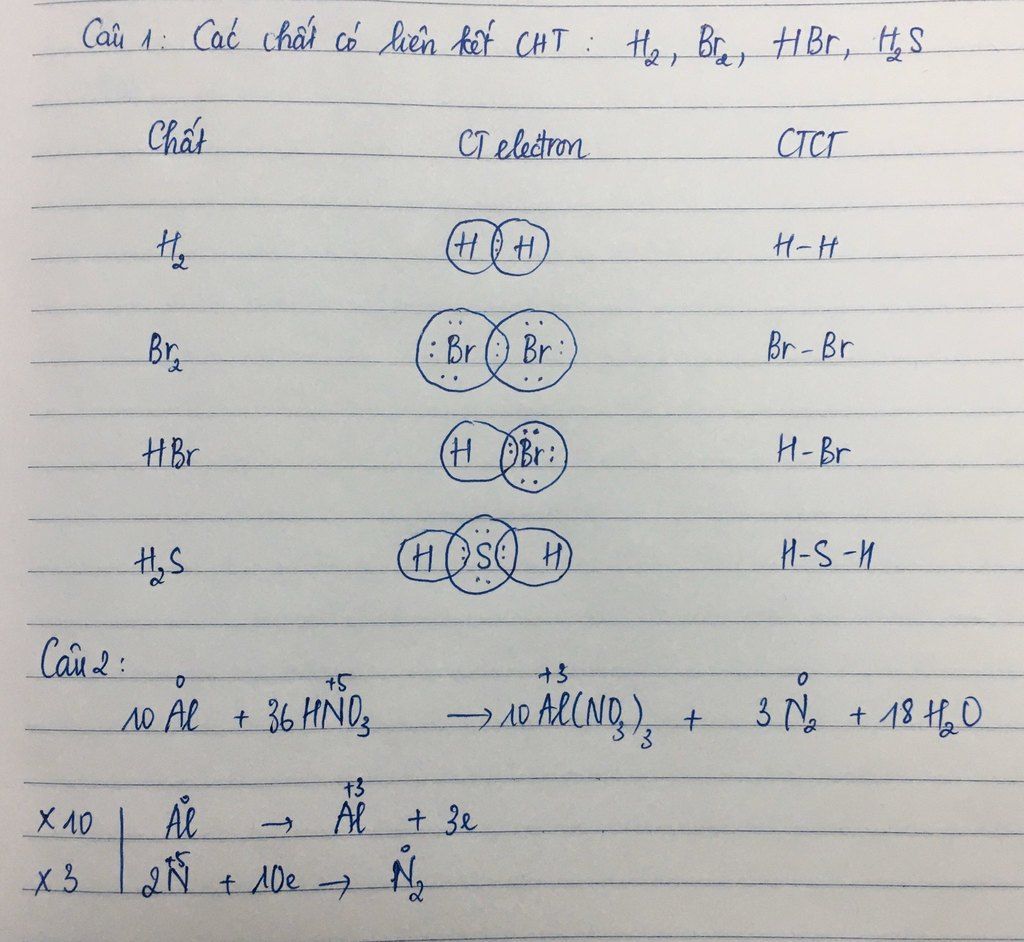 Câu 1: Các chất có liên kết CHT: H₂, Br₂, HBr, H₂S
Chất CT electron CTCT
H₂ H : H H-H
Br₂ :Br : Br: Br-Br
HBr H :Br: H-Br
H₂S H :S: H H-S-H
Câu 2:
0 +5 +3 0
10 Al + 36 HNO₃ → 10 Al(NO₃)₃ + 3 N₂ + 18 H₂O
0 +3
x10 | Al → Al + 3e
+5 0
x3 | 2N + 10e → N₂